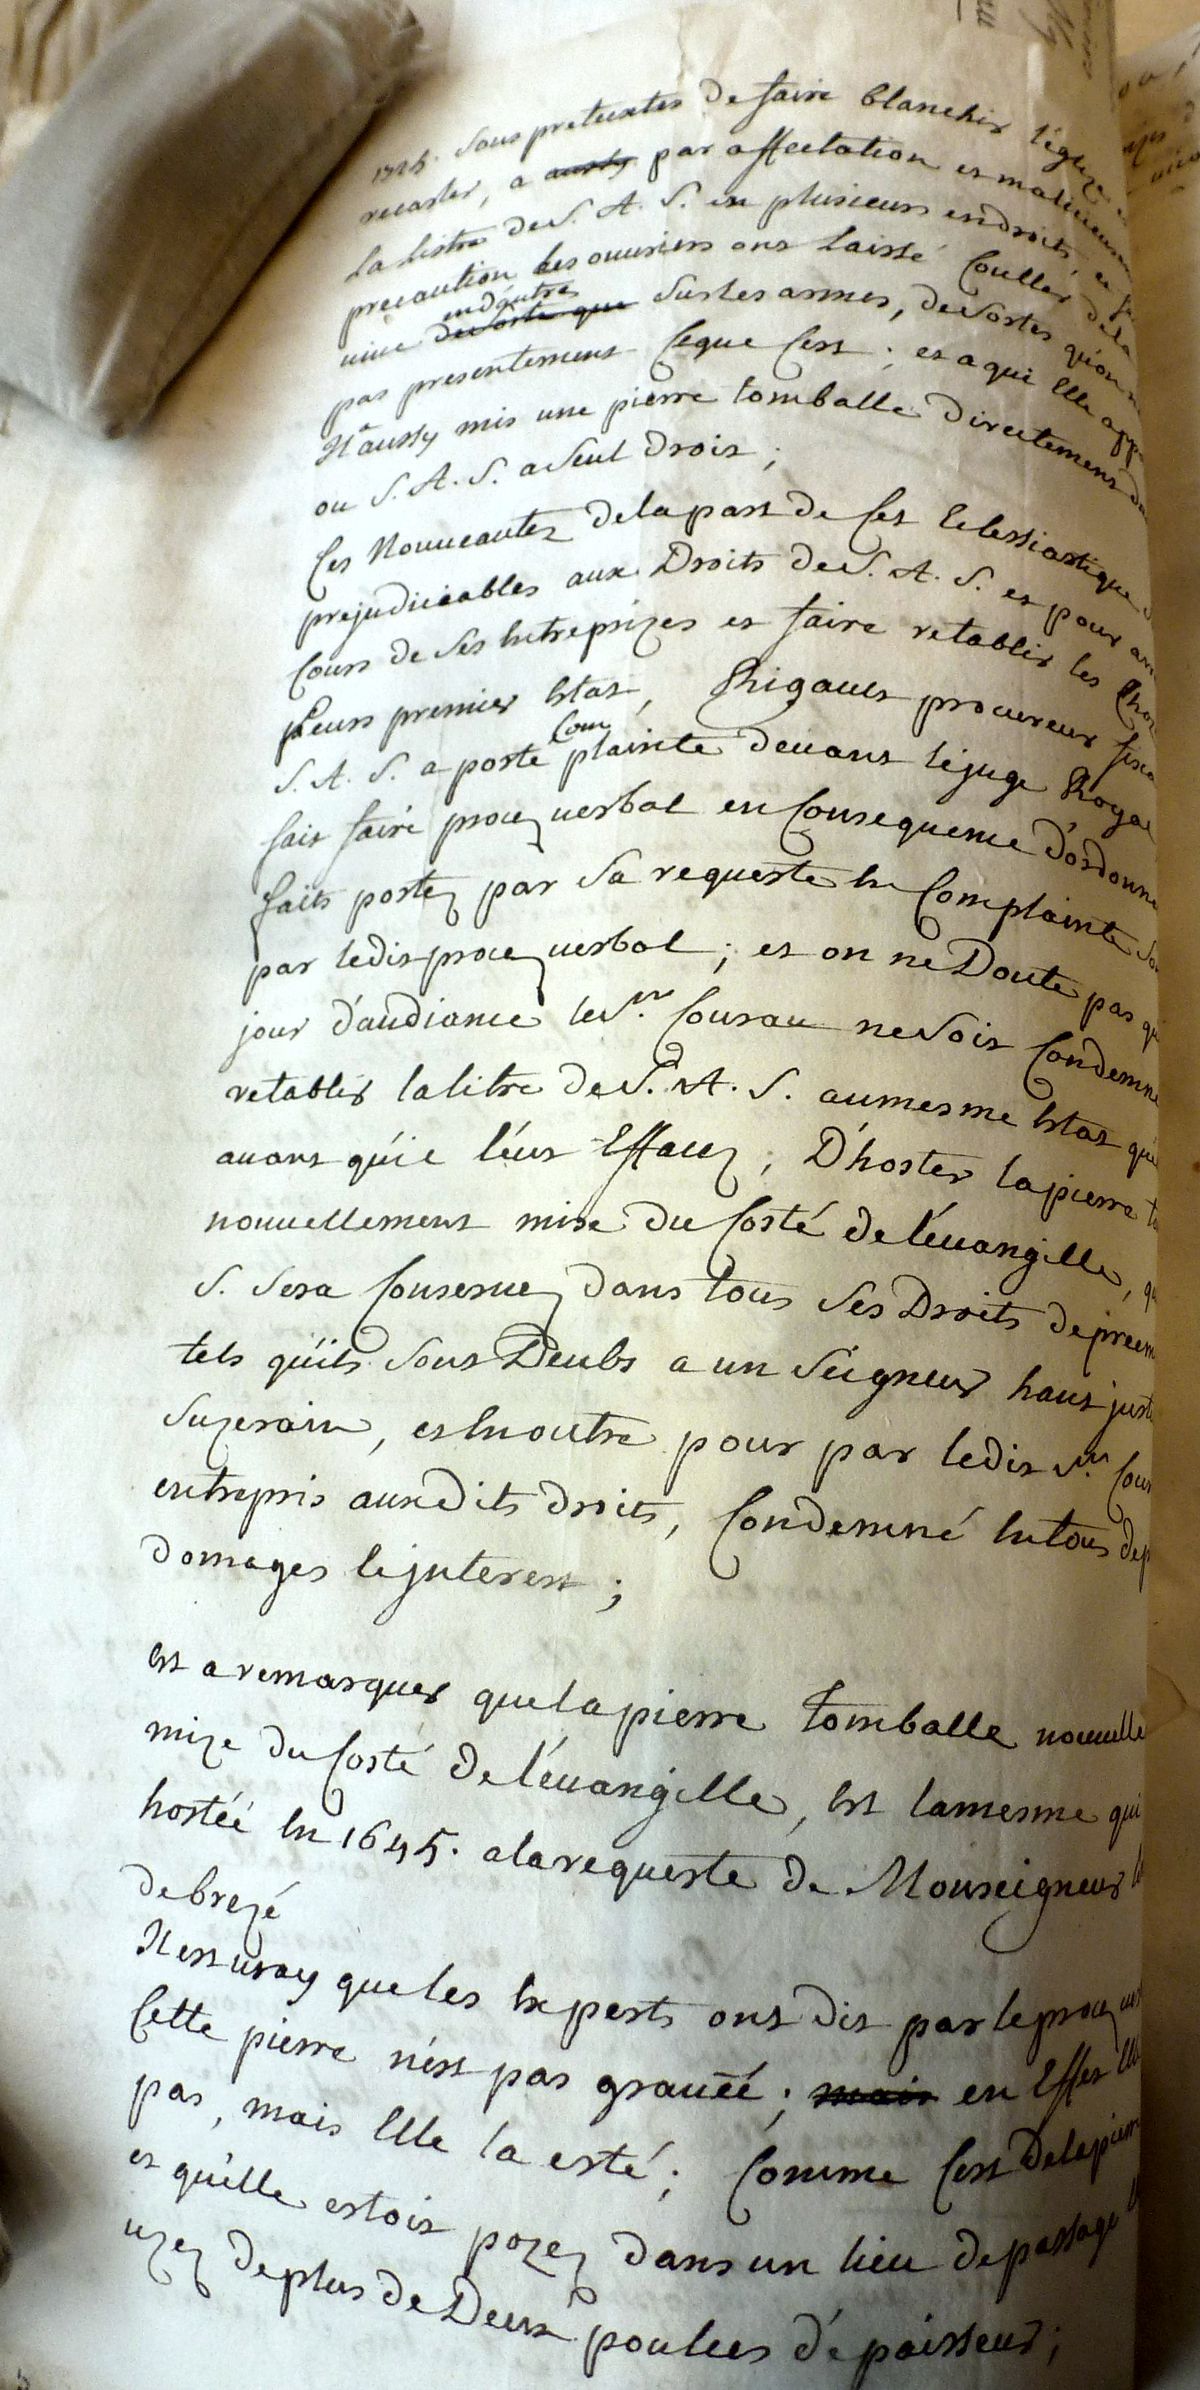 sous pretextes de faire blanchir l'eglize
recaster, a aussy par affectation et malicieusem
la listre de S. A. S. en plusieurs endroits, et
precaution les ouuriers ont laissé Couller dela
mine de sorte que endautres sur les armes, de sortes qu'on n
pas presentement Ceque Cest ; et a qui Elle app
Il a aussy mis une pierre tomballe directement d
ou S. A. S. a seul droit ;
Ces Nouueautez dela part de Cet Eclessiastique
prejudiciables aux Droits de S. A. S. et pour arr
Cours de ses Entreprizes et faire retablir les Choz
Leurs premier Estat, Rigault procureur fisca
S. A. S. a porté Com plainte deuant le juge Royal
fait faire procez verbal en Consequence d'ordonn
faits portez par sa requeste En Complainte
par ledit procez verbal ; et on ne Doute pas qu
jour d'audiance le Sr. Courau ne soit Condemne
retablir la litre de S. A. S. au mesme Estat qu'e
auant qu'il l'eut Effacez ; D'hoster la pierre to
nouuellement mise du Costé de l'éuangille, qu
S. sera Conseruez dans tous ses Droits de preem
tels qu'ils sont Deubs a un seigneur haut just
suzerain, et En outre pour par ledit Sr. Cour
entrepris auxdits droits, Condemné En tous dep
domages Et jnterest ;
Est a remarquer que la pierre tomballe nouuelle
mize du Costé de l'éuangille, Est la mesme qui
hostéé En 1645. a la requeste de Monseigneur
de brezé
Il est uray que les Experts ont dit par le procez ver
Cette pierre n'est pas grauéé ; mais en Effet Elle
pas, mais Elle la esté ; Comme Cest De la pierre
et qu'elle estoit pozez dans un lieu de passage
uzez de plus de Deux poulces d'épaisseur ;